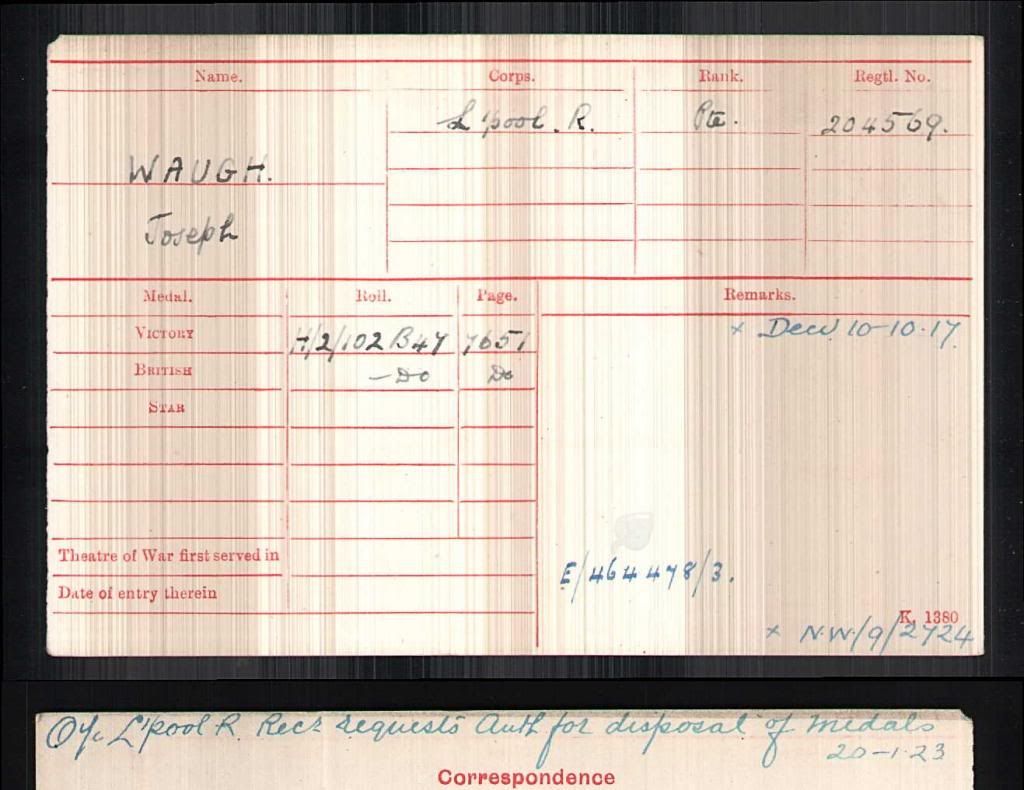 Name. Corps. Rank. Regtl. No.
L'pool. R. Pte. 204569.
WAUGH.
Joseph
Medal. Roll. Page. Remarks.
VICTORY H/2/102 B47 7651 x Decd. 10-10-17.
BRITISH —Do Do
STAR
Theatre of War first served in
E/464478/3.
Date of entry therein
K. 1380
x N.W/9/2724
O/c L'pool R. Recs requests Auth for disposal of medals
20-1-23
Correspondence